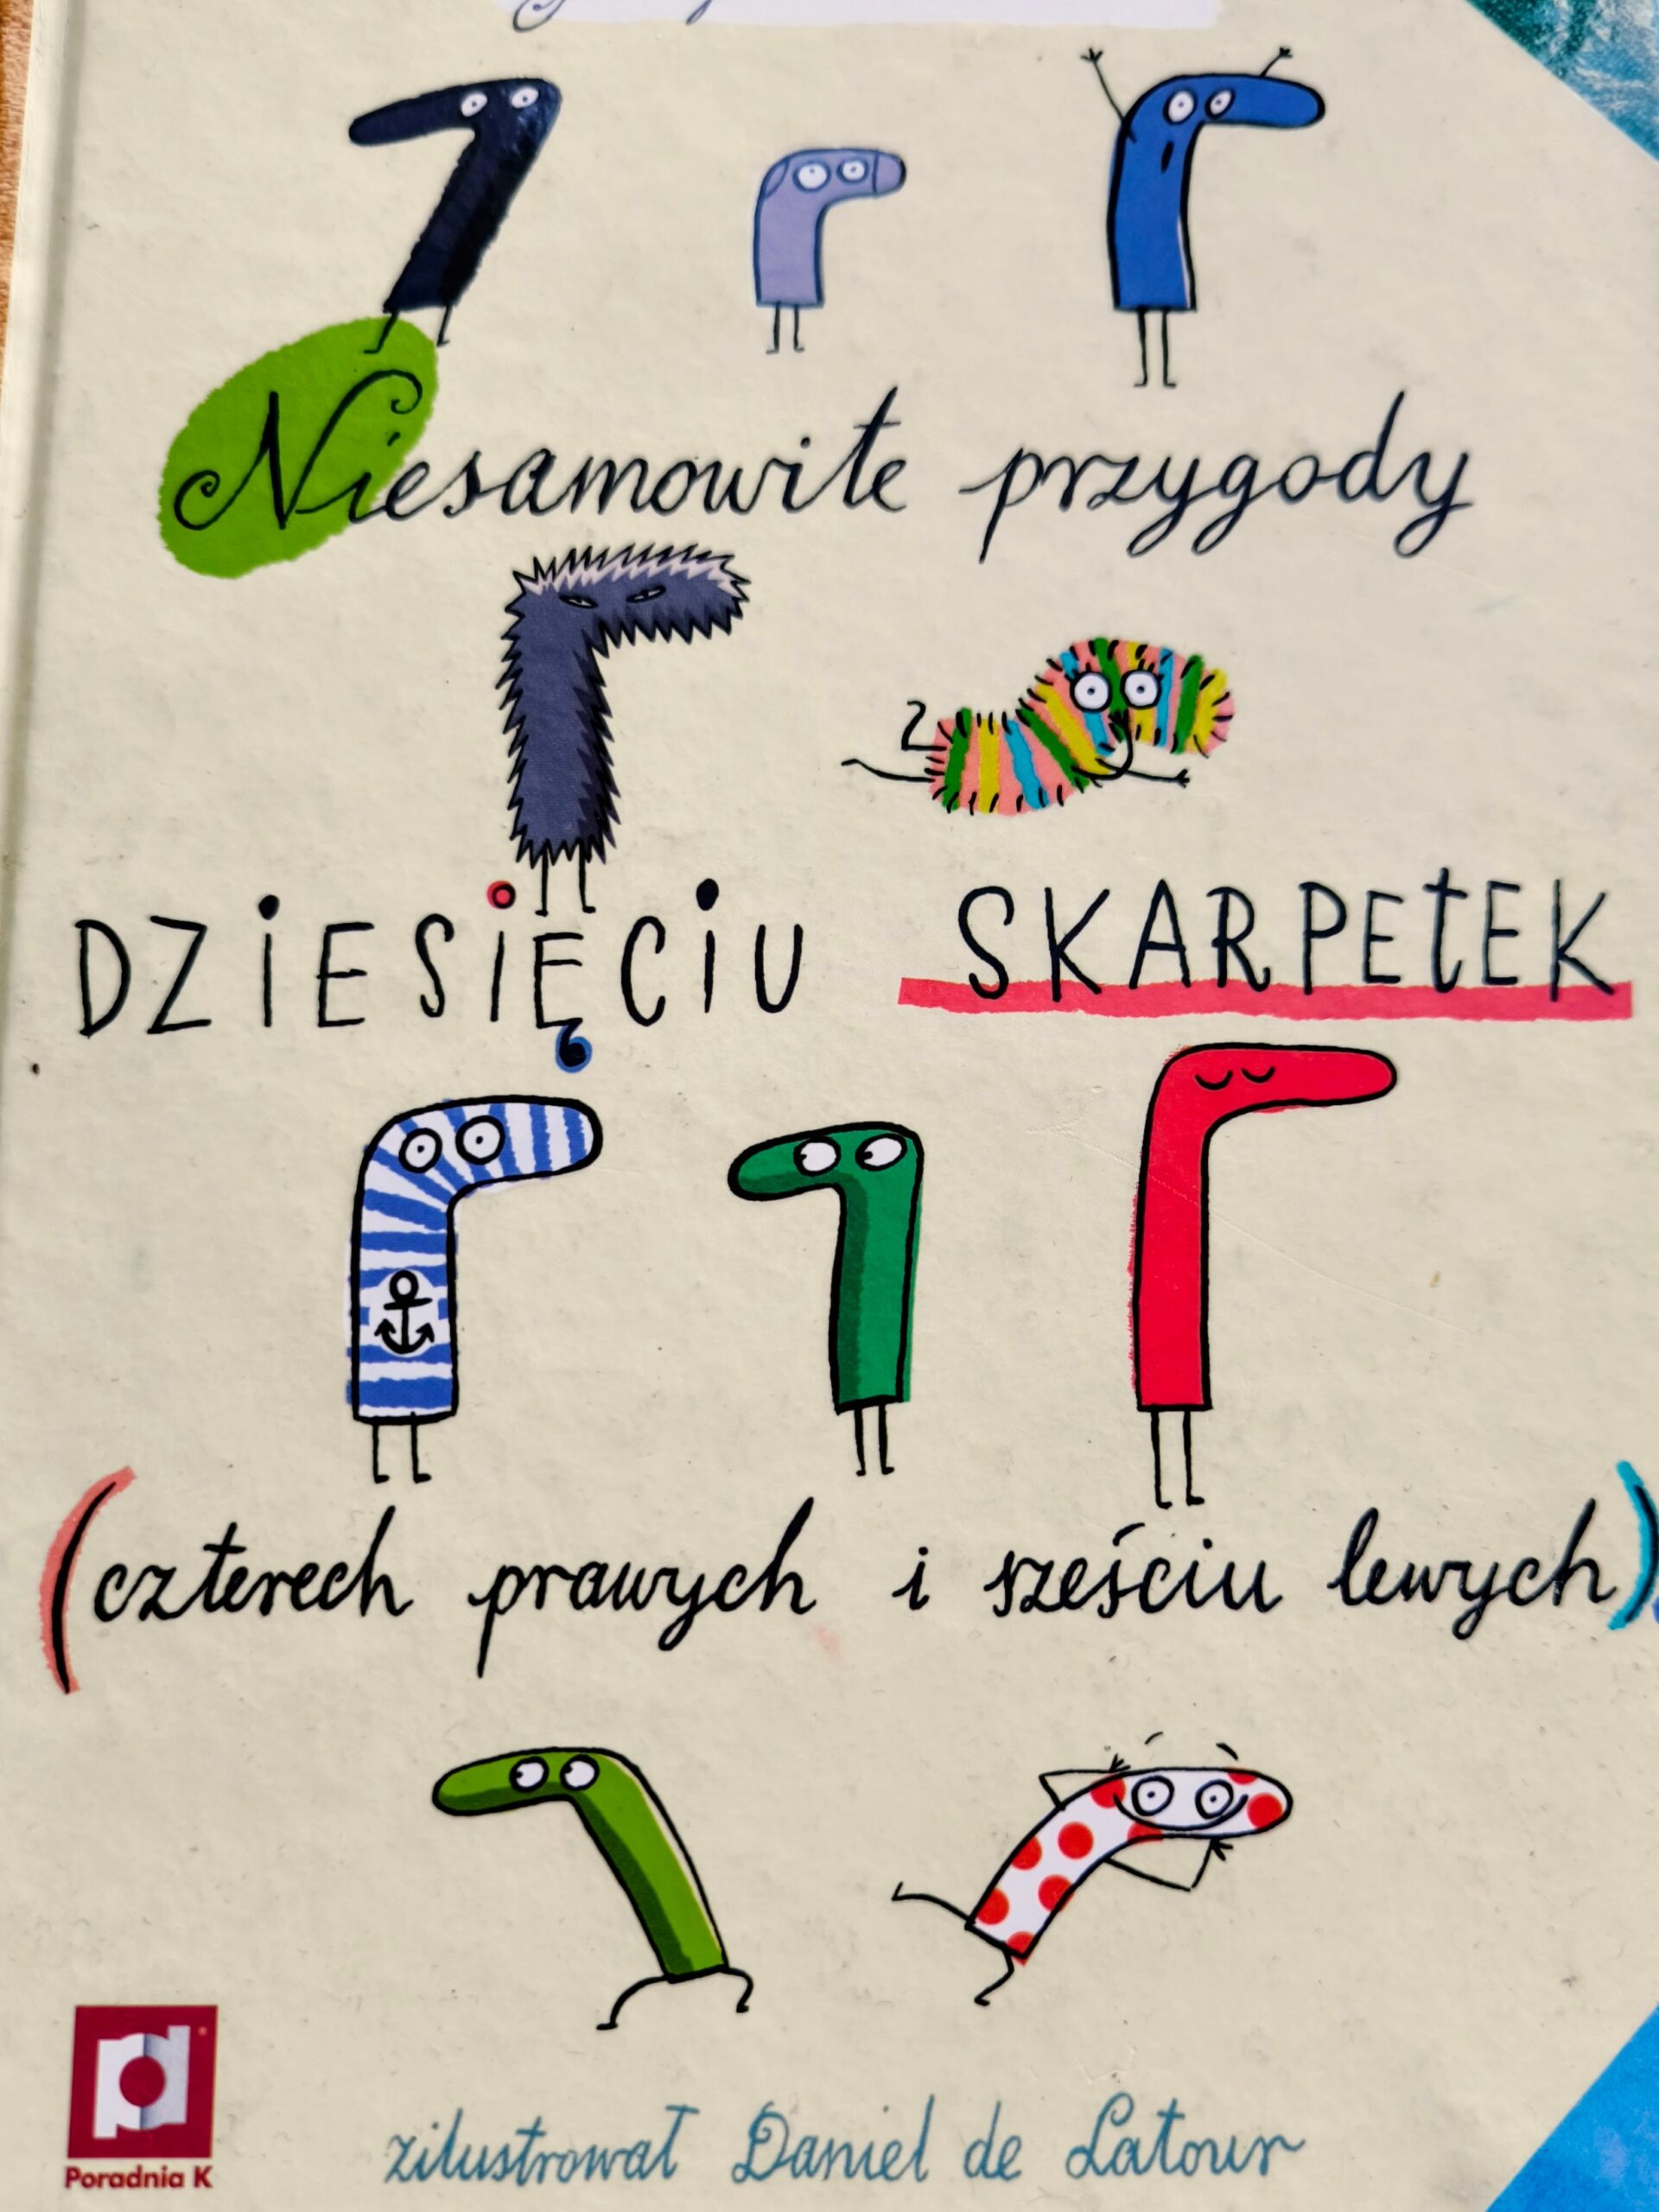 Niesamowite przygody
DZiESiĘCiU SKARPEtEK
(czterech prawych i sześciu lewych)
zilustrował Daniel de Latour
pd
Poradnia K